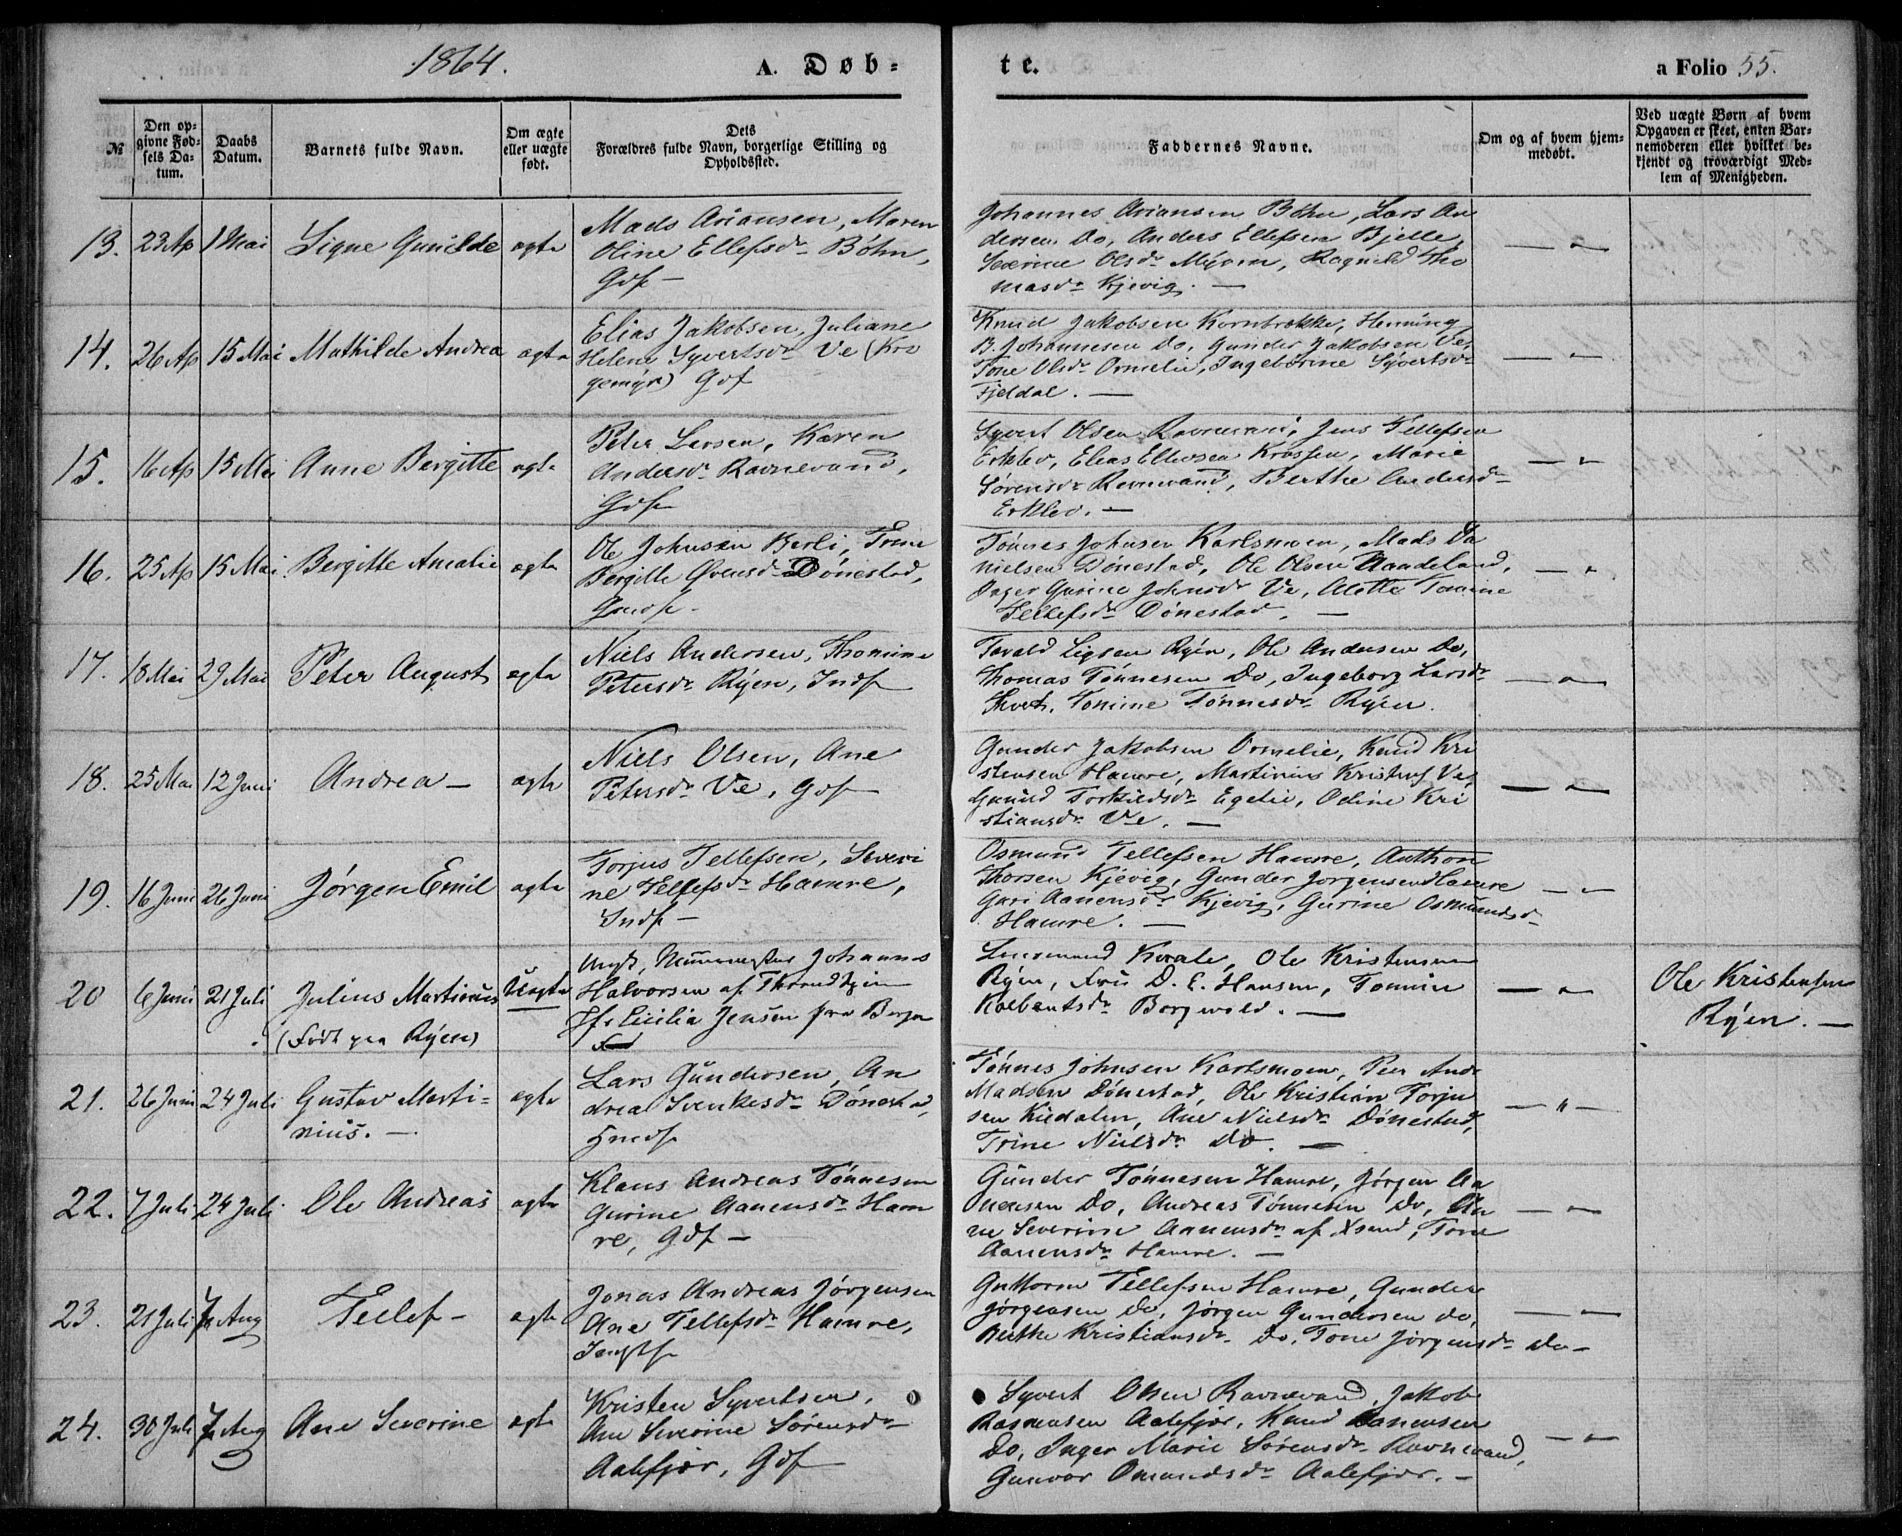 1864.
A. Døb-
te.
a Folio 55.
№
Den op-
givne Fød-
sels Da-
tum.
Daabs
Datum.
Barnets fulde Navn.
Om ægte
eller uægte
født.
Dets
Forældres fulde Navn, borgerlige Stilling og
Opholdssted.
Faddernes Navne.
Om og af hvem hjem-
medøbt.
Ved uægte Børn af hvem
Opgaven er skeet, enten Bar-
nemoderen eller hvilket be-
kjendt og troværdigt Med-
lem af Menigheden.
13. 23 Ap 1 Mai Signe Gunilde ægte
Mads Ariansen, Maren
Oline Ellefsdr Bøhn,
Gdf
Johannes Ariansen Bøhn, Lars An
dersen Do, Anders Ellefsen Bjelle,
Severine Olsdr Myren, Ragnild Tho
masdr Kjevig. —
— " —
14. 26 Ap 15 Mai Mathilde Andrea ægte
Elias Jakobsen, Juliane
Helene Syvertsdr Ve (Kro
gemyr) Gdf
Knud Jakobsen Kornbrække, Henning
B. Johannesen Do, Gunder Jakobsen Ve,
Tone Olsdr Ormelie, Ingeborine Syvertsdr
Fjeldal. —
— " —
15. 16 Ap 15 Mai Anne Bergitte ægte
Peter Larsen, Karen
Andersdr Ravnevand,
Gdf
Syvert Olsen Ravnevand, Jens Tellefsen
Erklev, Elias Ellevsen Krossen, Marie
Sørensdr Ravnevand, Berthe Andersdr
Erklev. —
— " —
16. 25 Ap 15 Mai Bergitte Amalie ægte
Ole Johnsen Berli, Trine
Bergitte Evensdr Dønestad,
Gmdf
Tønnes Johnsen Karlsmoen, Mads Da
nielsen Dønestad, Ole Olsen Aandeland,
Inger Gurine Johnsdr Ve, Alette Tomine
Tellefsdr Dønestad. —
— " —
17. 18 Mai 29 Mai Peter August ægte
Niels Andersen, Thomine
Petersdr Ryen, Indf
Tarald Ligsen Ryen, Ole Andersen Do,
Thomas Tønnesen Do, Ingeborg Larsdr
Tomine Tønnesdr Ryen.
— " —
18. 25 Mai 12 Juni Andrea — ægte
Niels Olsen, Ane
Petersdr Ve, Gdf
Gunder Jakobsen Ormelie, Knud Kri
stensen Hamre, Martinius Kristens Ve,
Gunild Torkildsdr Egelie, Odine Kri
stiansdr Ve. —
— " —
19. 16 Juni 26 Juni Jørgen Emil ægte
Torjus Tellefsen, Severi
ne Tellefsdr Hamre,
Indf —
Osmund Tellefsen Hamre, Anthon
Thorsen Kjevig, Gunder Jørgensen Hamre
Guri Aanensdr Kjevig, Gurine Osmundsdr
Hamre. —
— " —
20 6 Juni 21 Juli Julius Martinius Uægte
(Født paa Ryen)
Ungk, Murmester Johannes
Halvorsen af Throndhjem
Pf. Cicilia Jensen fra Bergen
Lensmand Kvale, Ole Kristensen
Ryen, Fru D. E. Hansen, Tomine
Kalbentsdr Borgevold. —
— " —
Ole Kristensen
Ryen. —
21. 26 Juni 24 Juli Gustav Marti-
nius. — ægte
Lars Gundersen, An
drea Svenkesdr Dønestad,
Gmdf
Tønnes Johnsen Karlsmoen, Peer And
Madsen Dønestad, Ole Kristian Torju
sen Kiedalen, Ane Nielsdr Dønestad,
Trine Nielsdr Do. —
— " —
22. 7 Juli 24 Juli Ole Andreas ægte
Klaus Andreas Tønnesen
Gurine Aanensdr Ham
re, Gdf —
Gunder Tønnesen Hamre, Jørgen Aa
nensen Do, Andreas Tønnesen Do, An
ne Severine Aanensdr af Xsand, Tone
Aanensdr Hamre. —
— " —
23. 21 Juli 7 Aug Tellef — ægte
Jonas Andreas Jørgensen
Ane Tellefsdr Hamre,
Guttorm Tellefsen Hamre, Gunder
Jørgensen Do, Jørgen Gundersen do,
Berthe Kristiansdr Do, Tone Jørgensdr Do —
— " —
24. 30 Juli 7 Aug Ane Severine ægte
Kristen Syvertsen,
Ane Severine Sørensdr
Aalefjær, Gdf
Syvert Olsen Ravnevand, Jakob
Rasmusen Aalefjær, Knud Aanensen
Do, Inger Marie Sørensdr Ravnevand,
Gunvor Omundsdr Aalefjær. —
— " —